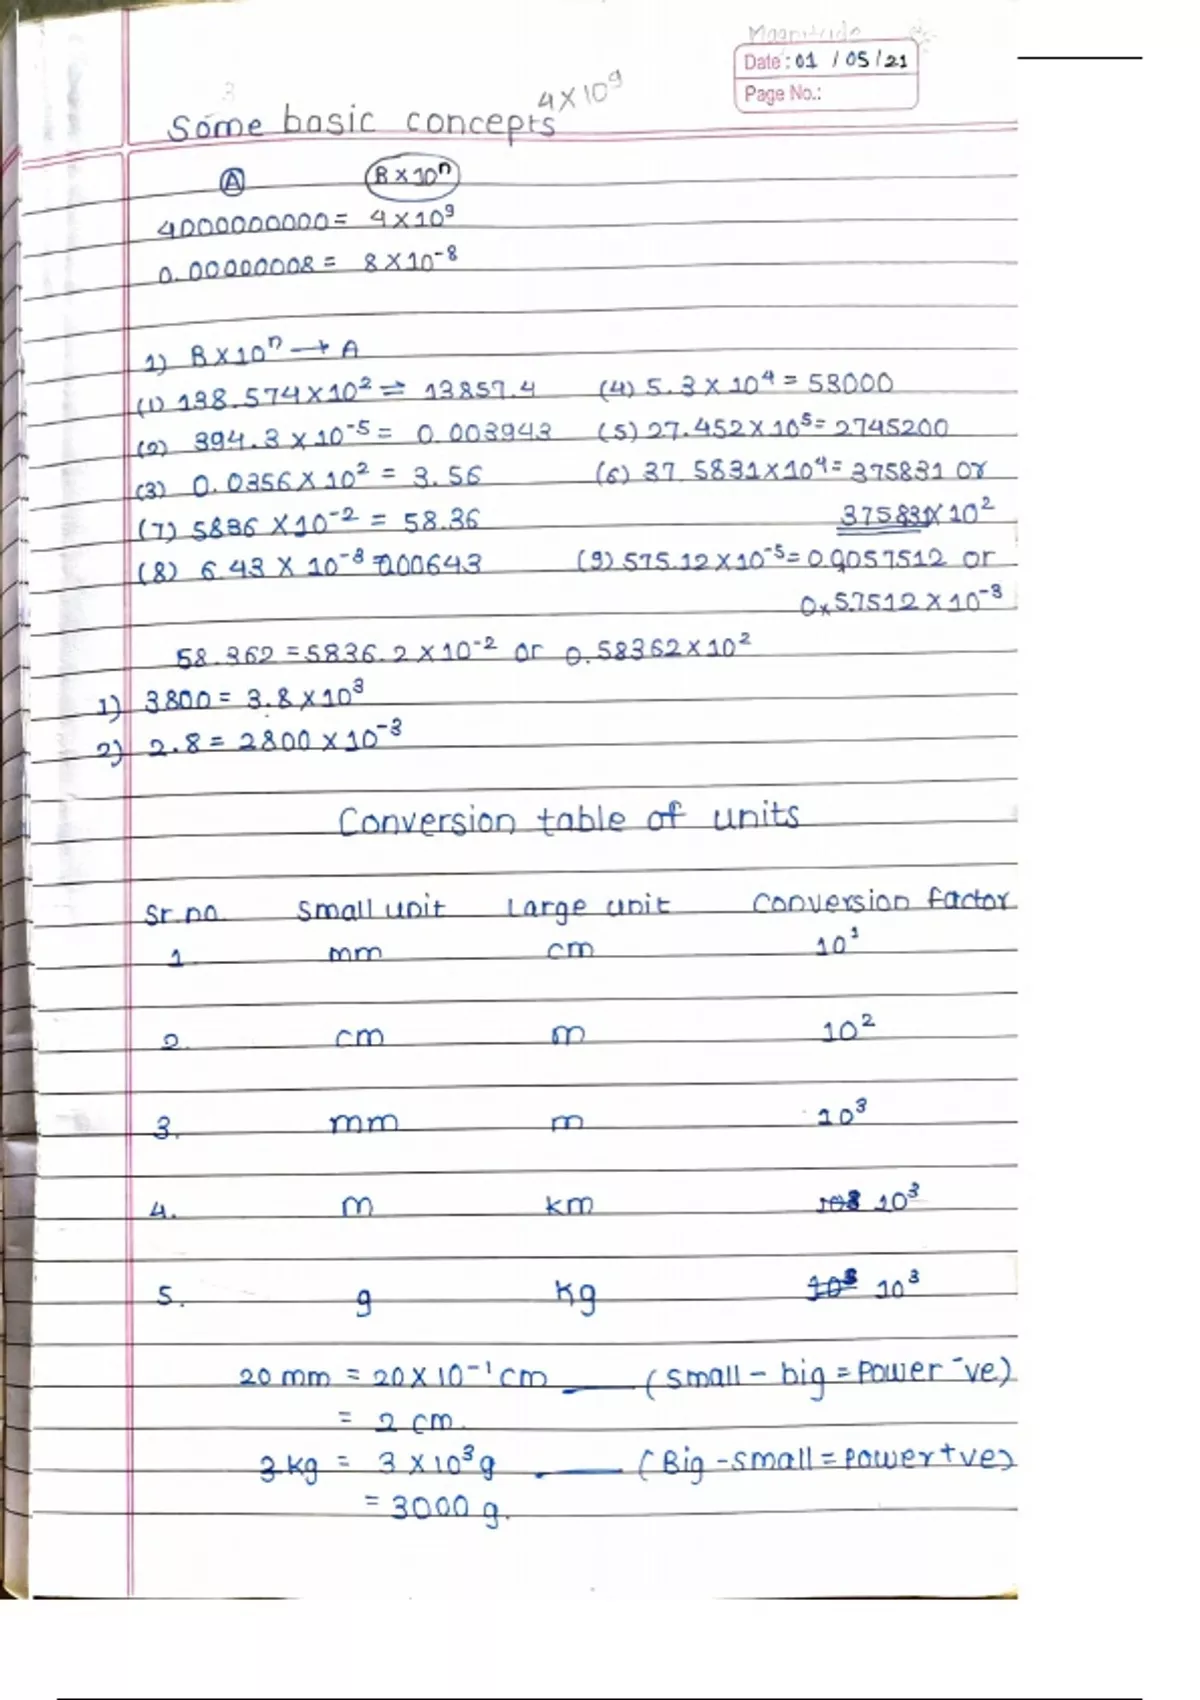 Magnitude
Date : 01 / 05 / 21
Page No.:
4 X 10⁹
Some basic concepts
Ⓐ B X 10ⁿ
4000000000 = 4 X 10⁹
0.00000008 = 8 X 10⁻⁸
1) B X 10ⁿ → A
(1) 138.574 X 10² = 13857.4 (4) 5.3 X 10⁴ = 53000
(2) 394.3 X 10⁻⁵ = 0.003943 (5) 27.452 X 10⁵ = 2745200
(3) 0.0356 X 10² = 3.56 (6) 37.5831 X 10⁴ = 375831 or
(7) 5836 X 10⁻² = 58.36 375831 X 10²
(8) 6.43 X 10⁻³ = 0.00643 (9) 575.12 X 10⁻⁵ = 0.0057512 or
5.7512 X 10⁻³
58.362 = 5836.2 X 10⁻² or 0.58362 X 10²
1) 3800 = 3.8 X 10³
2) 2.8 = 2800 X 10⁻³
Conversion table of units
Sr.no. Small unit Large unit Conversion factor
1 mm cm 10¹
2. cm m 10²
3. mm m 10³
4. m km 10³
5. g kg 10³
20 mm = 20 X 10⁻¹ cm — (small - big = power -ve)
= 2 cm.
3 kg = 3 X 10³ g — (Big - small = power +ve)
= 3000 g.